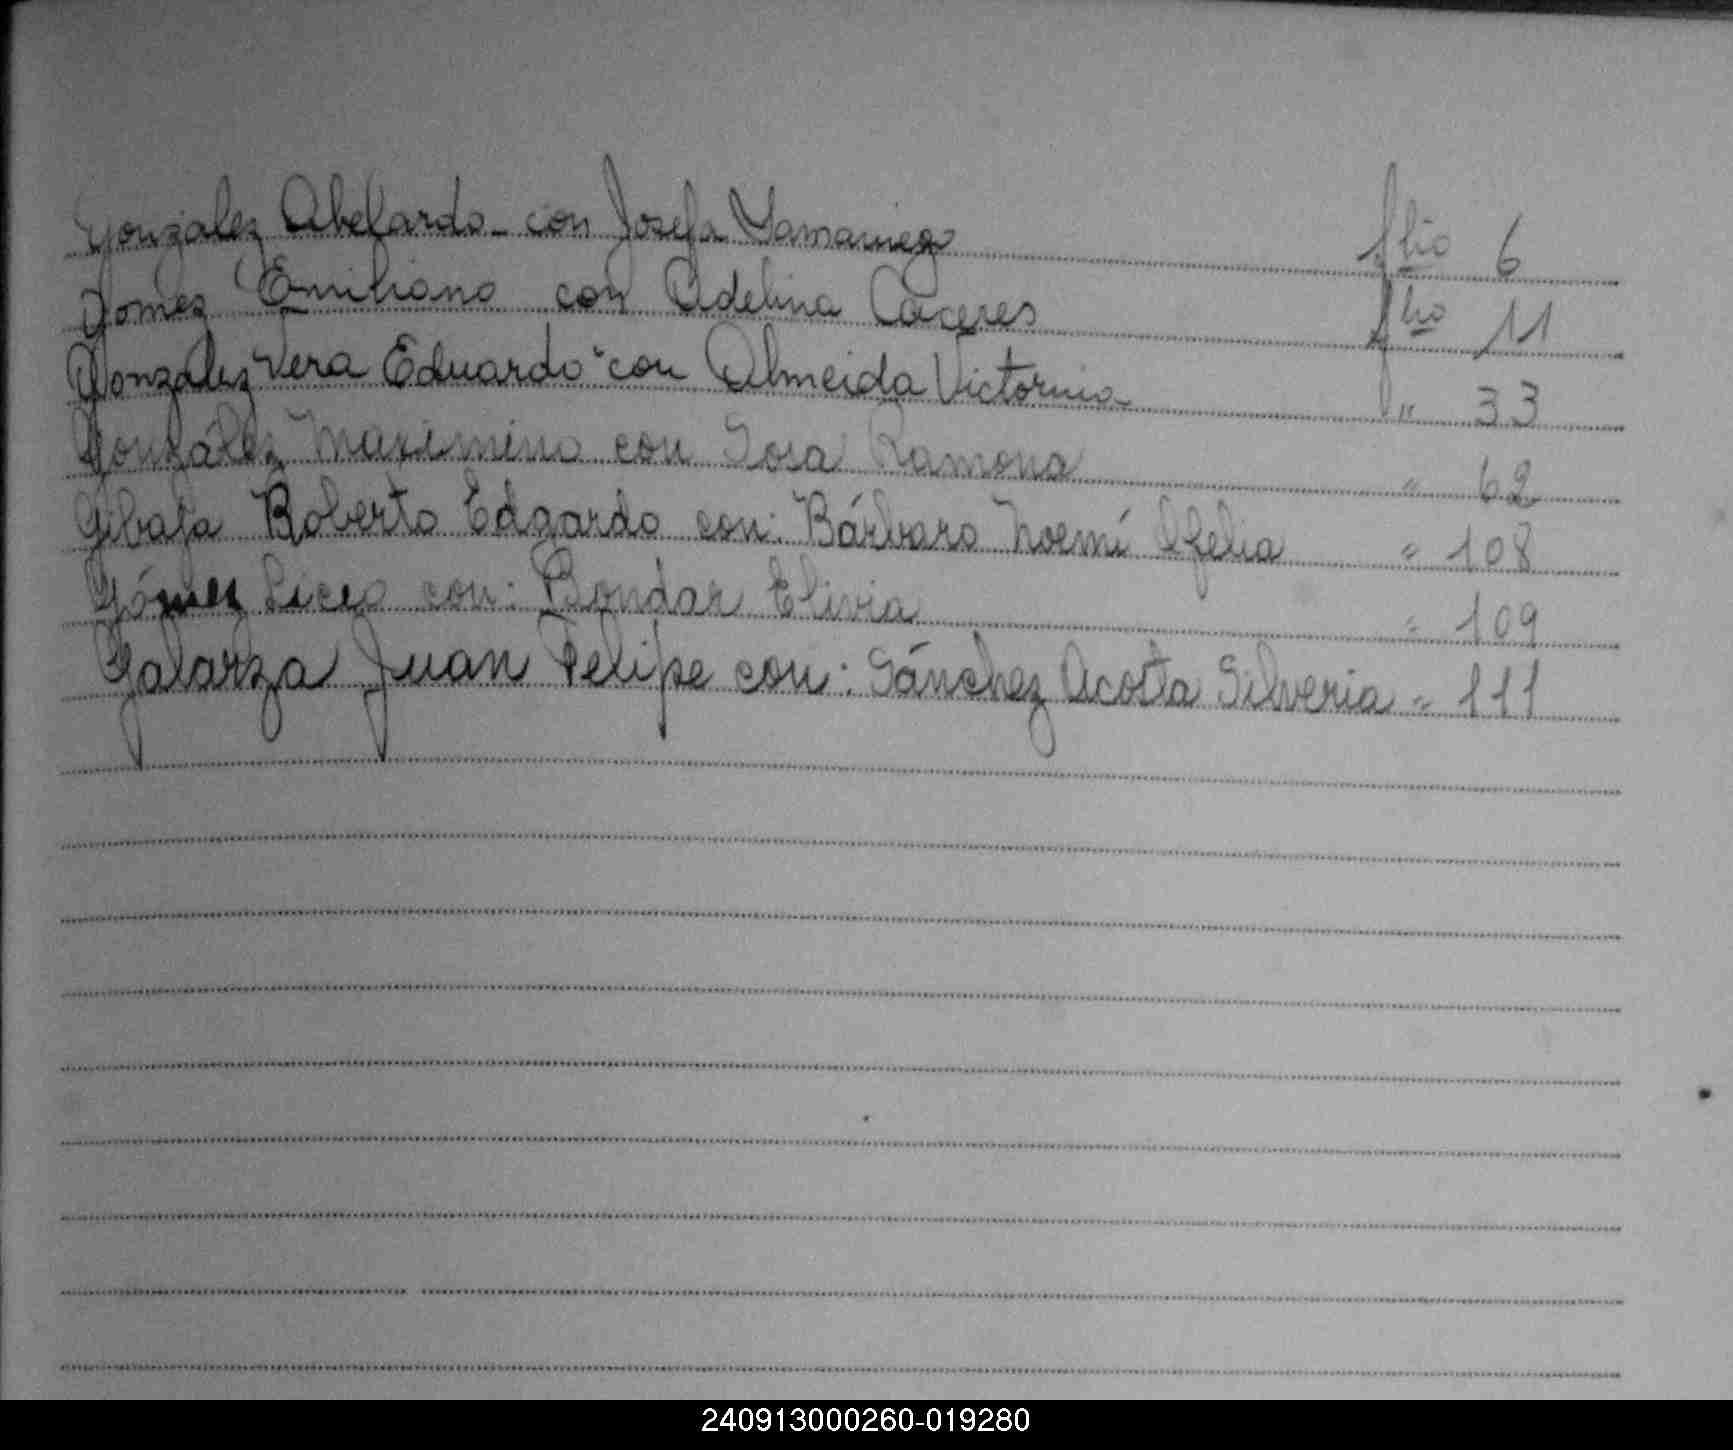 Gonzalez Abelardo - con Josefa Samaniego flio 6
Gomez Emiliano con Adelina Caceres flio 11
Gonzalez Vera Eduardo " con Almeida Victorina " 33
González Maximino con Sosa Ramona " 62
Gibaja Roberto Edgardo con: Bárbaro Noemí Ofelia " 108
Gómez con: Bondar Elivia " 109
Galarza Juan Felipe con: Sánchez Acosta Silveria " 111
240913000260-019280